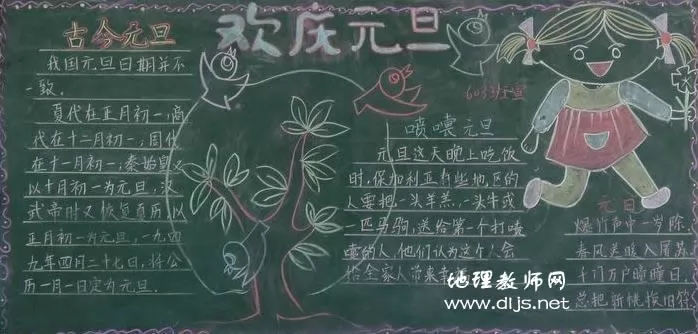 欢庆元旦
古今元旦
我国元旦日期并不
一致.
夏代在正月初一;商
代在十二月初一;周代
在十一月初一;秦始皇又
以十月初一为元旦,汉
武帝时又恢复夏历以
正月初一为元旦,一九四
九年四月二十七日,将公
历一月一日定为元旦.
喷嚏元旦
元旦这天晚上吃饭
时,保加利亚有些地区的
人要把一头羊羔,一头牛或
一匹马驹,送给第一个打喷
嚏的人,他们认为这个人会
给全家人带来幸
元日
爆竹声中一岁除
春风送暖入屠苏
千门万户曈曈日
总把新桃换旧符
地理教师网
www.dljs.net